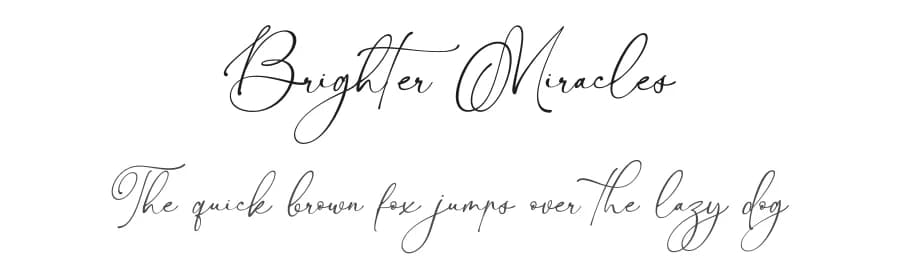 Brighter Miracles
The quick brown fox jumps over the lazy dog